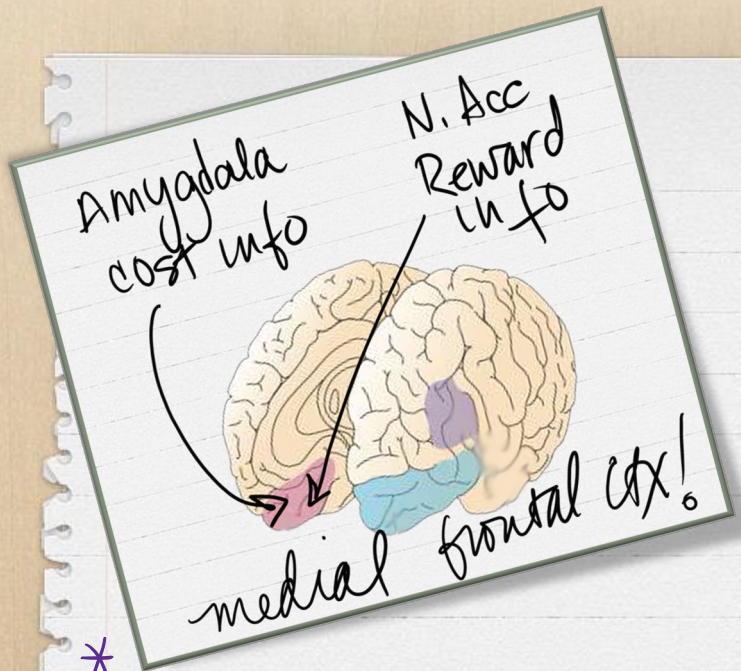 Amygdala
cost info
N. Acc
Reward
info
medial frontal ctx!